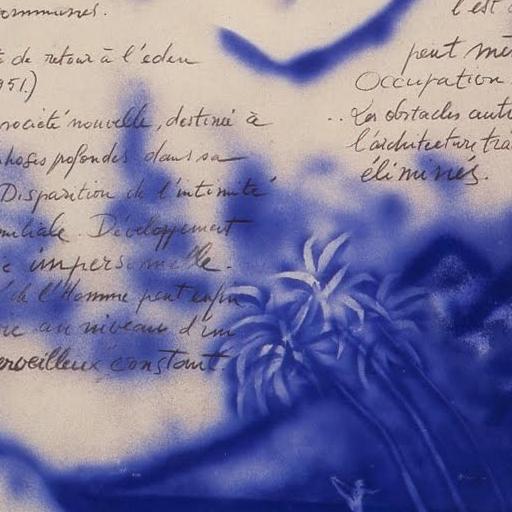 communes.
de retour à l'eden
951.)
société nouvelle, destinée à
profondes dans sa
Disparition de l'intimité
miliale. Développement
impersonnelle.
de l'Homme peut enfin
au niveau d'un
erveilleux constant.
l'est
peut
Occupation
.. Les obstacles
l'architecture tra
éliminés.